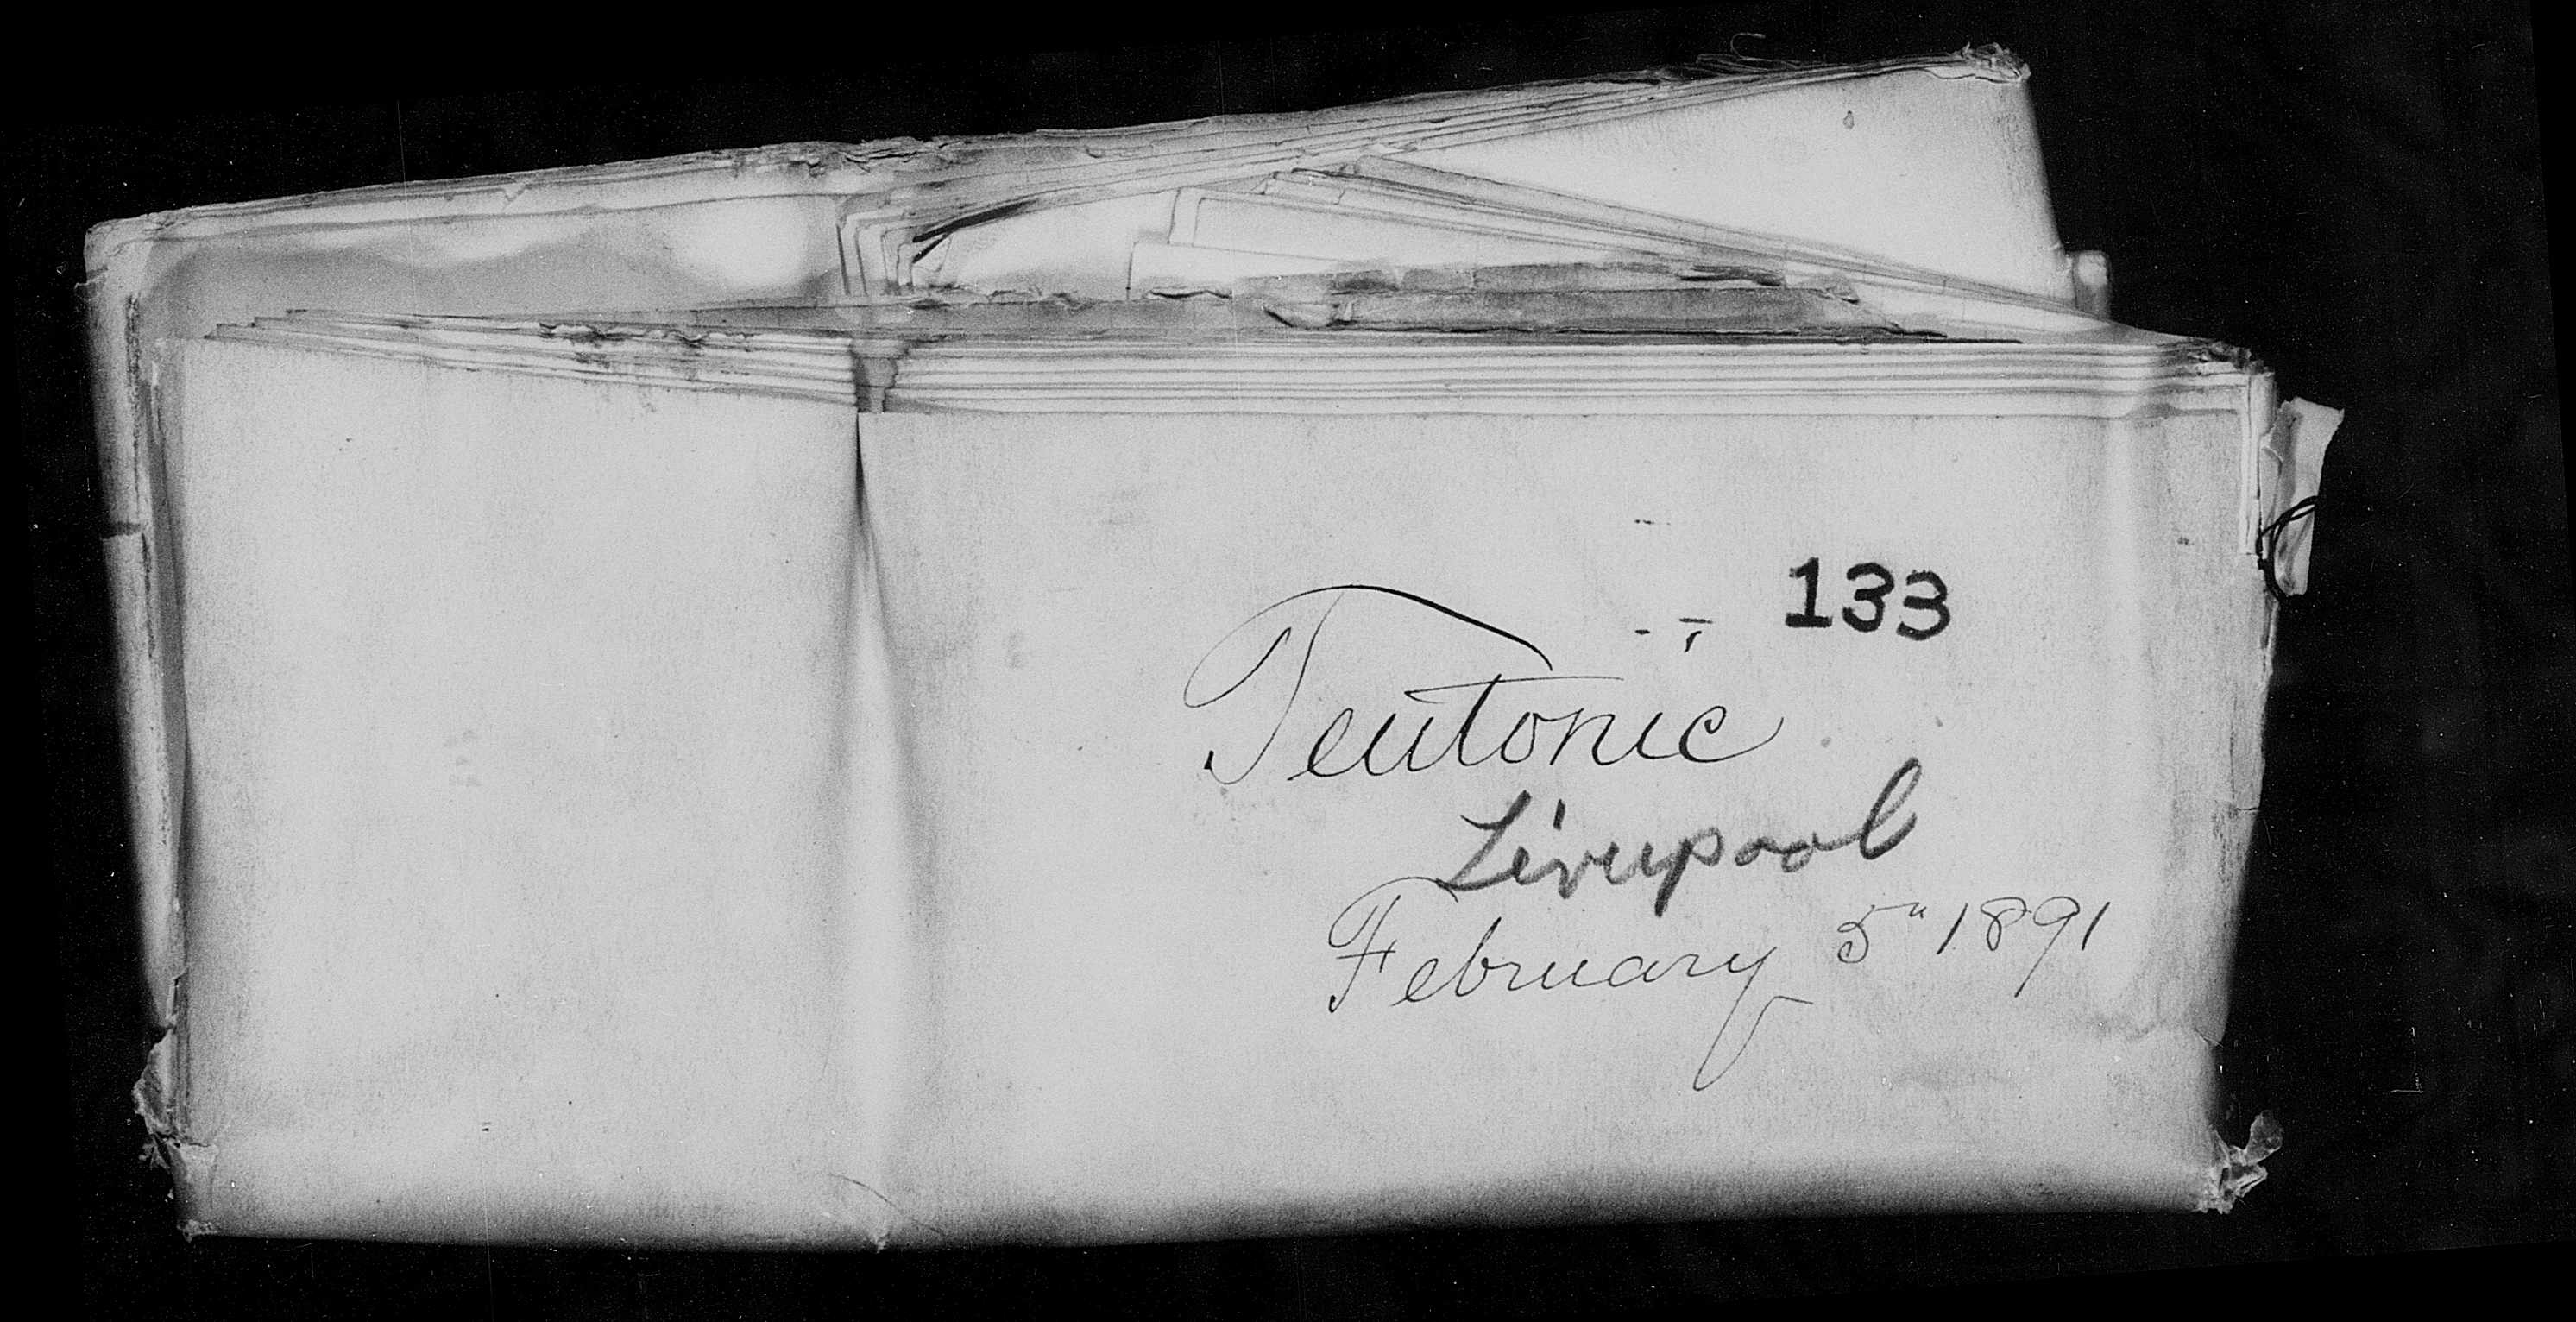 133
Teutonic
Liverpool
February 5" 1891